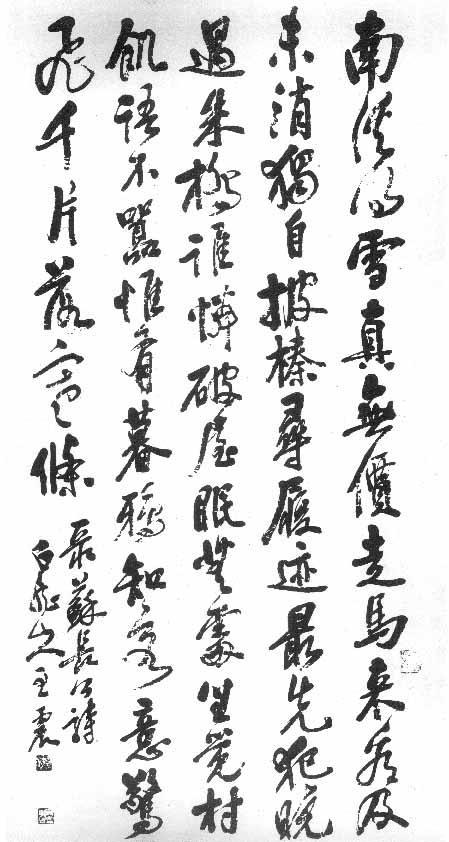 南溪得雪真無價走馬來看及
未消獨自披榛尋履迹最先犯曉
過朱橋誰憐破屋眠無處坐覺村
飢語不囂惟有暮鴉知客意驚
飛千片落寒條
蘇長公詩
白龍山人王震